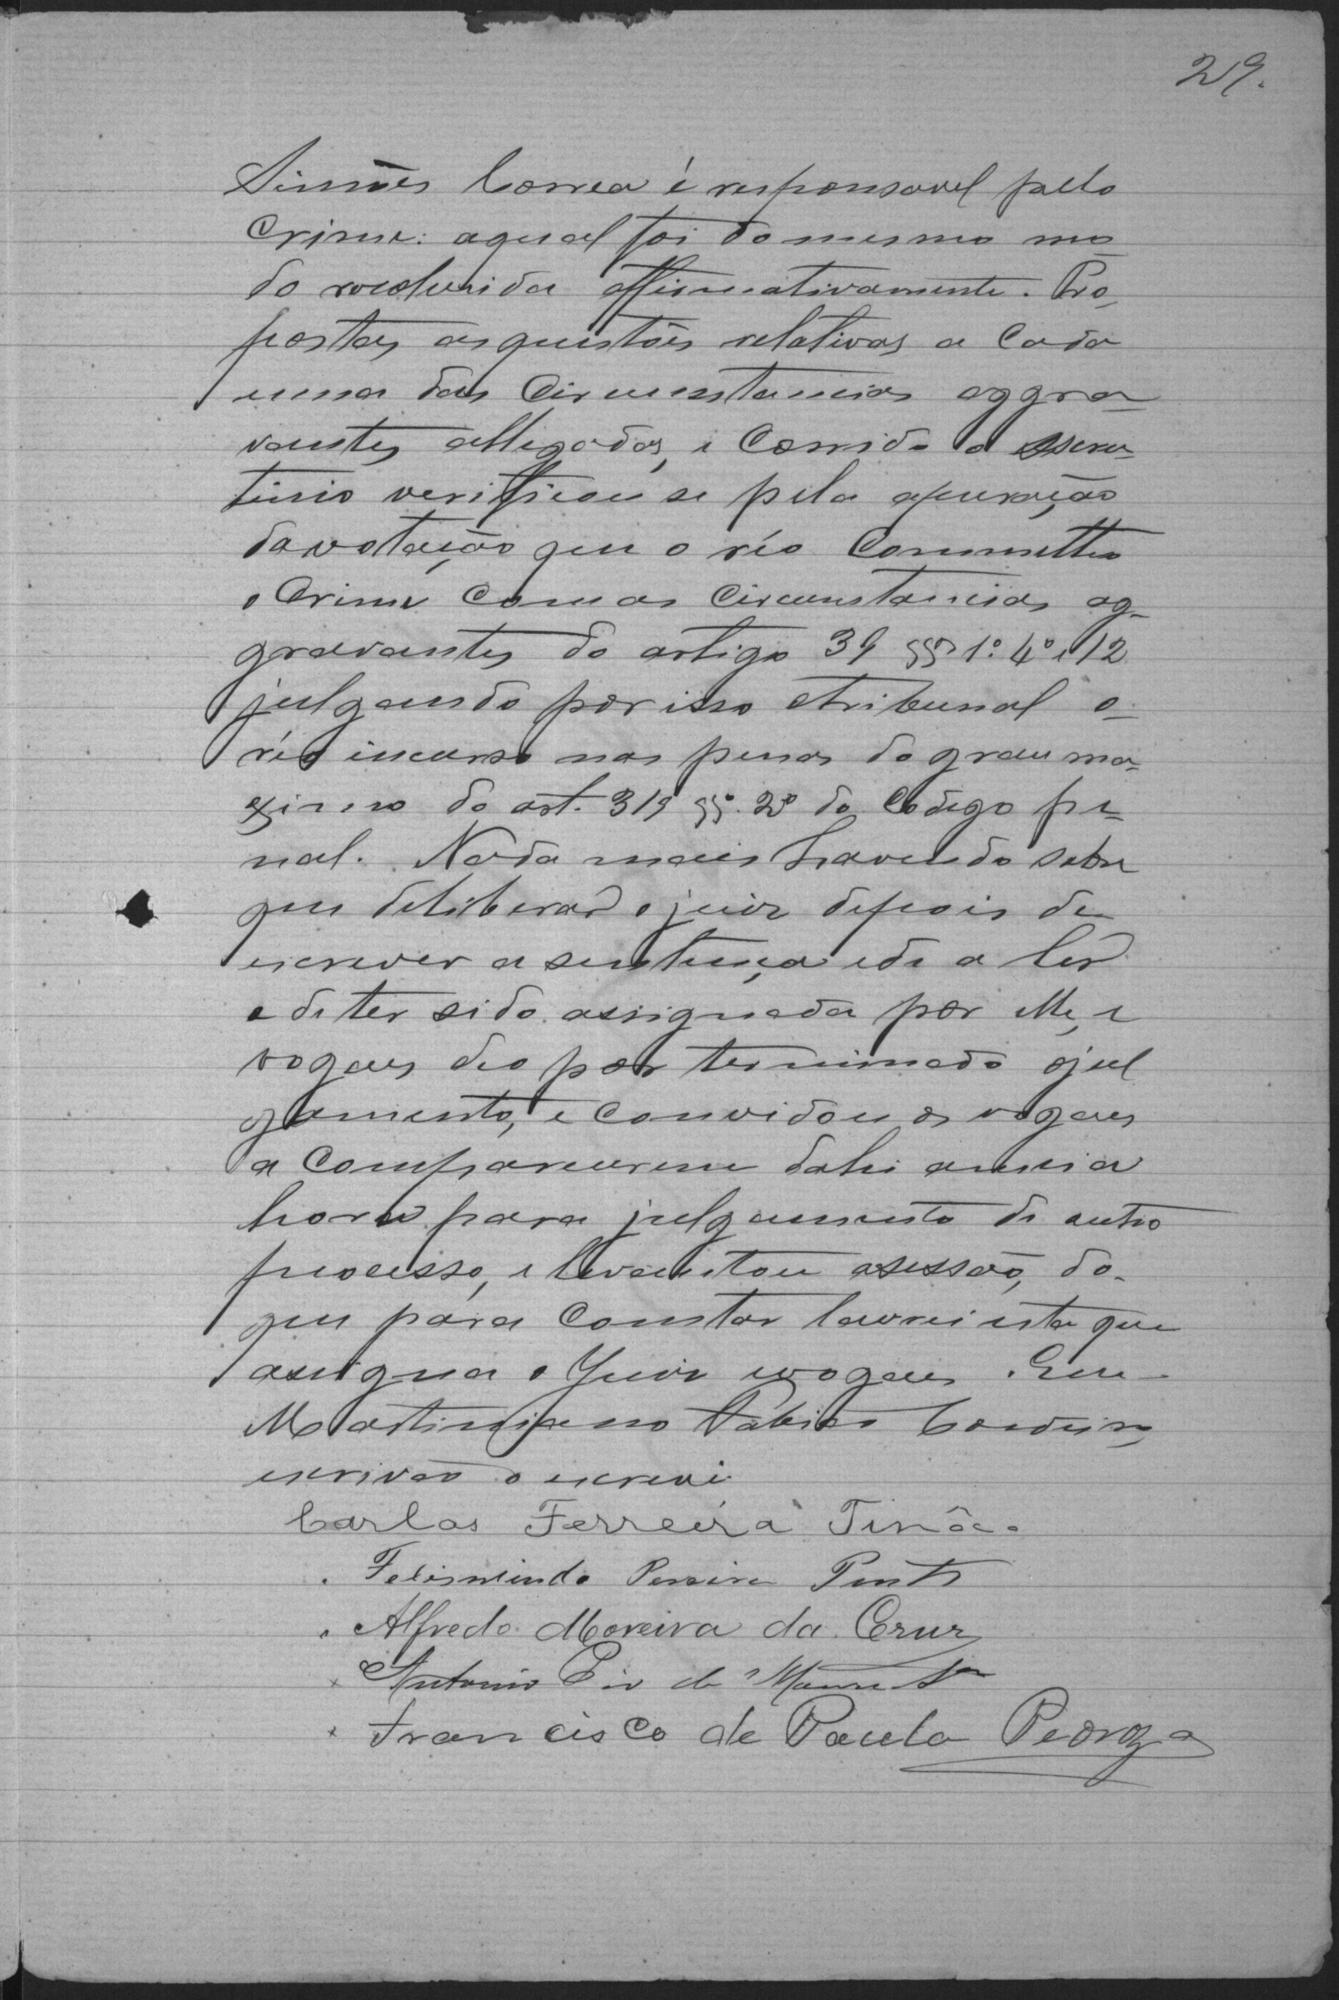 29.
Simões Correa é responsavel pelo
crime: aqual foi do mesmo mo-
do resolvida affirmativamente. Pro-
postas as questões relativas a cada
uma das circumstancias aggra-
vantes allegadas, e corrido o escru-
tinio verificou se pela apuração
da votação que o réo commetteo
o crime com as circumstancias ag-
gravantes do artigo 39 §§ 1º 4º e 12
julgando por isso o tribunal o
réo incurso nas penas do grau ma-
ximo do art. 319 §§. 2º do Codigo pe-
nal. Nada mais havendo sobre
que deliberar o juiz depois de
escrever a sentença e de a ler
e de ter sido assignada por elle, e
vogaes deo por terminado o jul
gamento, e convidou os vogaes
a comparecerem dahi a meia
hora para julgamento de outro
processo, e levantou a sessão, do
que para constar lavrei esta que
assigna o Juiz e vogaes. Eu
Martiniano Fabião Cordeiro,
escrivão o escrevi
Carlos Ferreira Tinôco
Felismindo Pereira Pinto
Alfredo Moreira da Cruz
Antonio Pio de
Francisco de Paula Pedroza